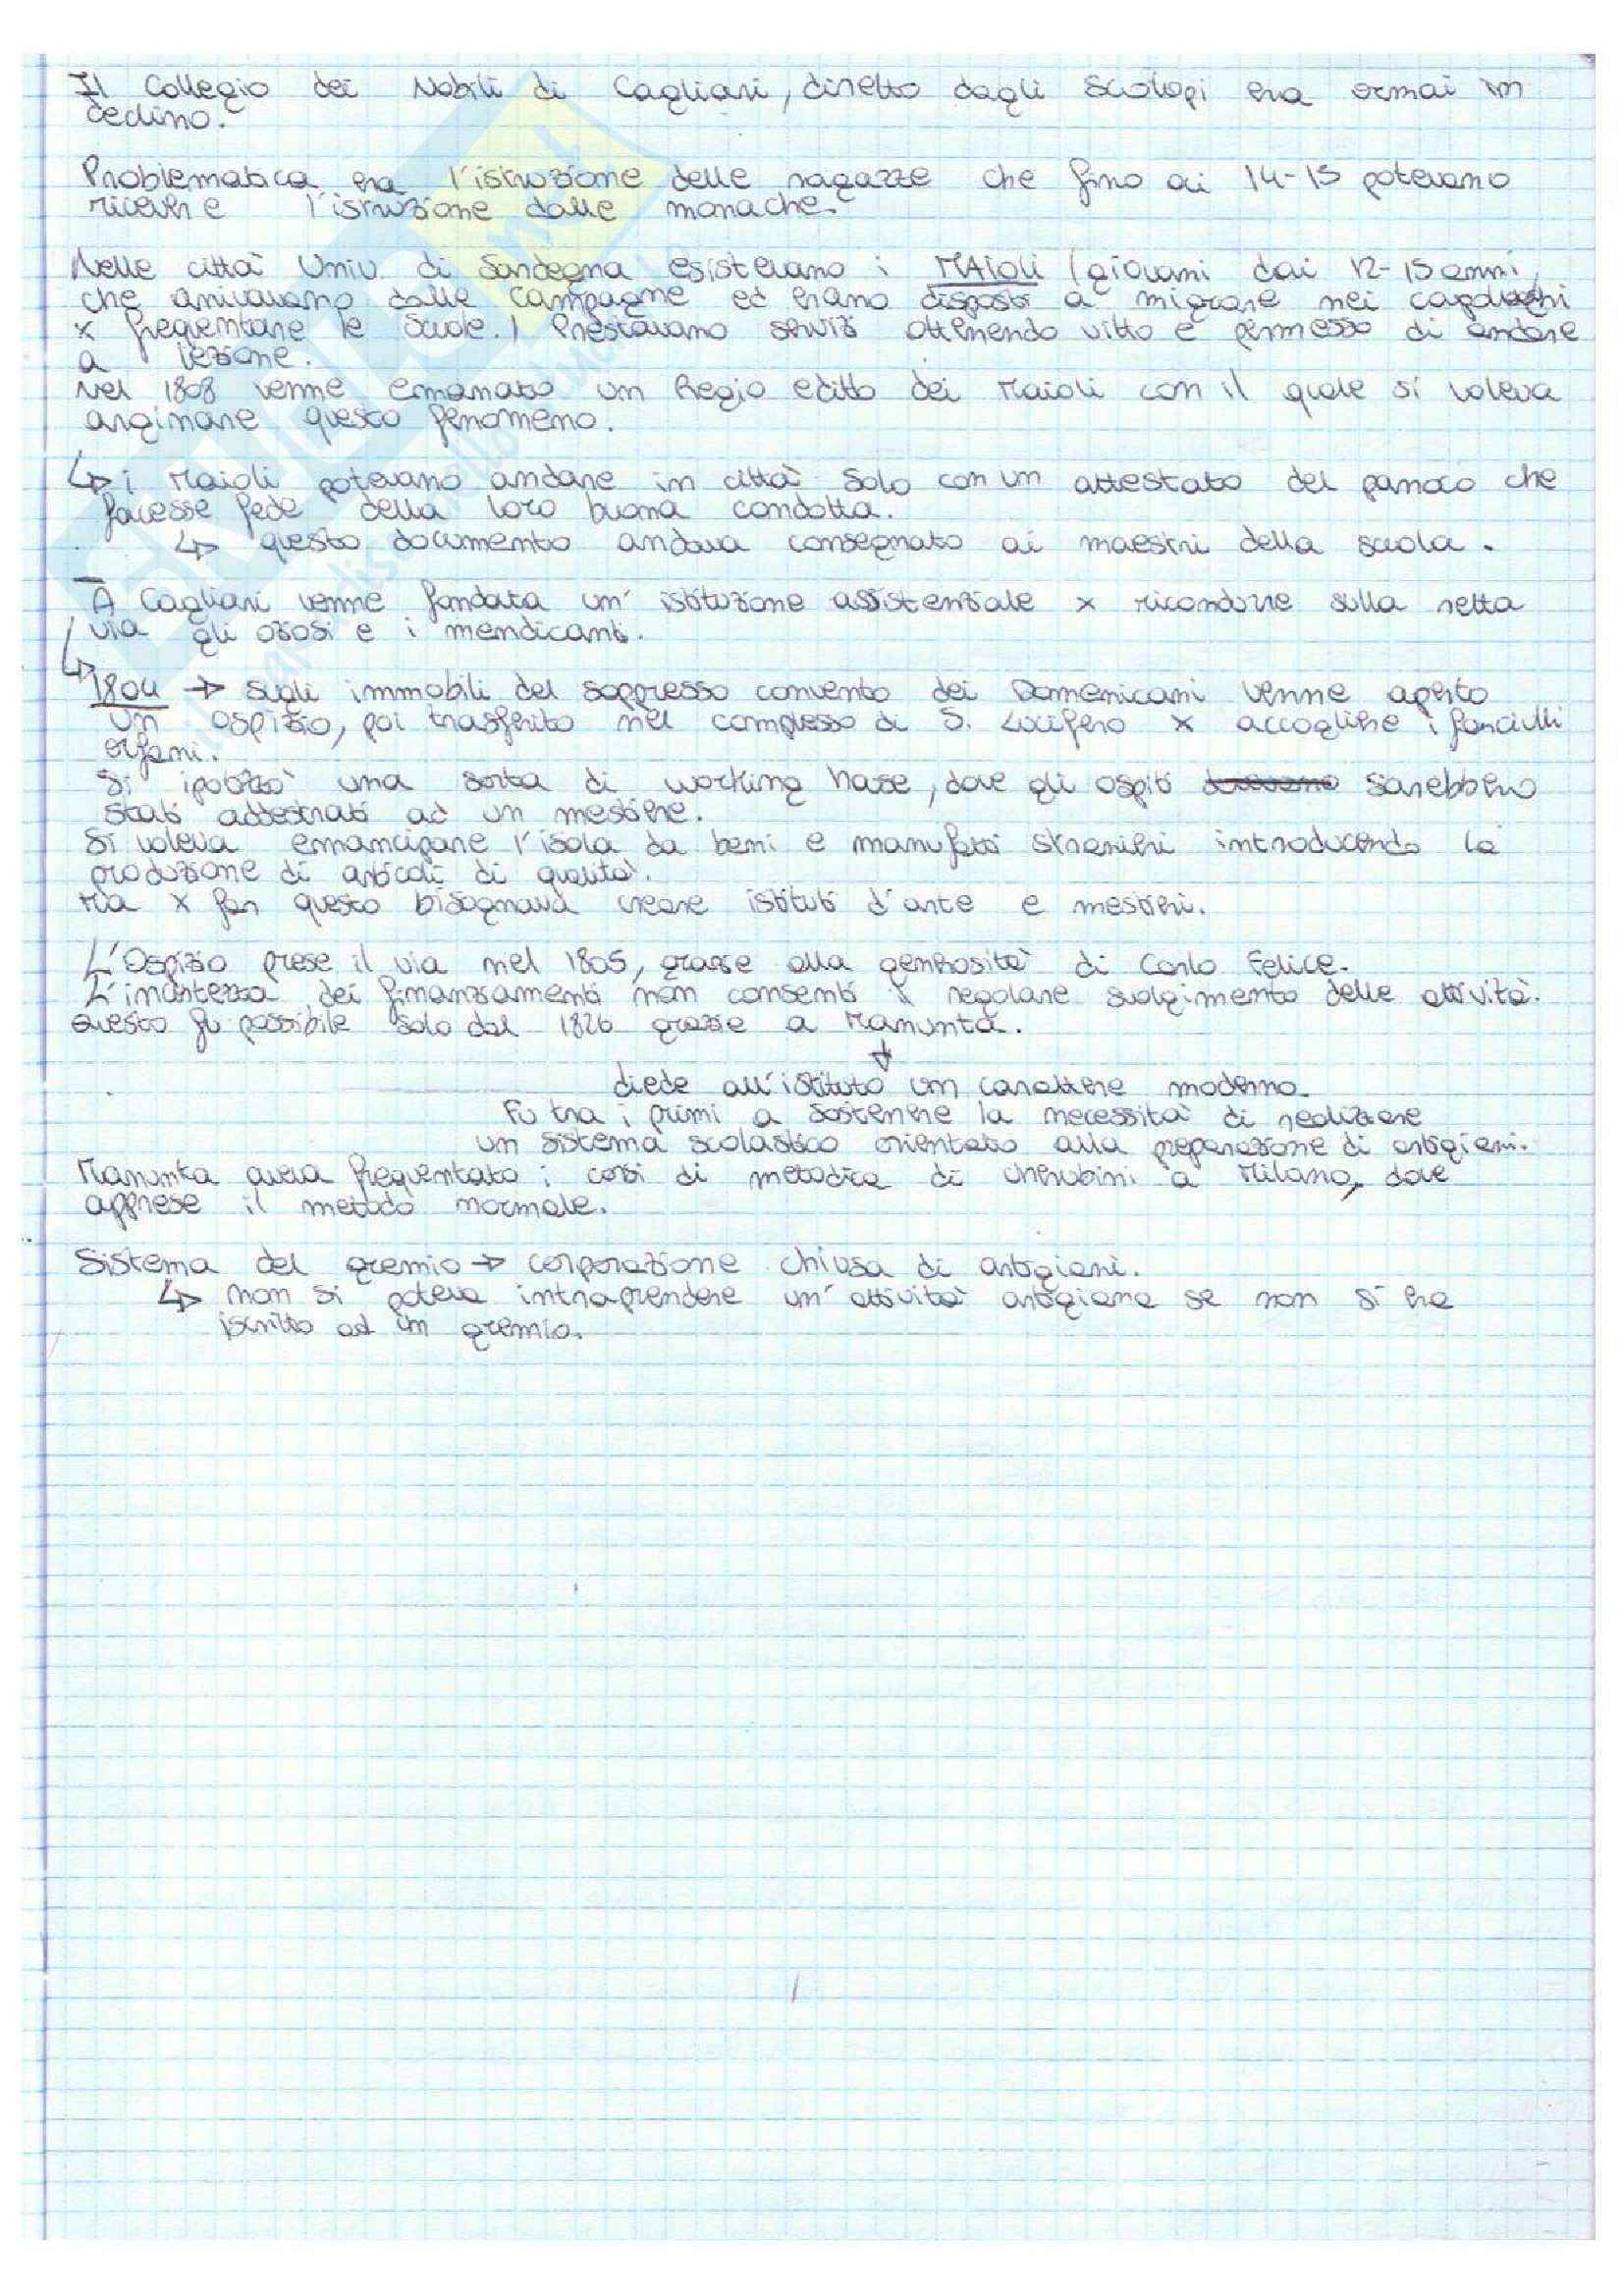 Il Collegio dei Nobili di Cagliari, diretto dagli Scolopi era ormai in
declino.
Problematica era l'istruzione delle ragazze che fino ai 14-15 potevano
ricevere l'istruzione dalle monache.
Nelle città Univ. di Sardegna esistevano i MAIOLI (giovani dai 12-15 anni,
che arrivavano dalle campagne ed erano disposti a migrare nei capoluoghi
x frequentare le scuole.) Prestavano servizi ottenendo vitto e permesso di andare
a lezione.
Nel 1808 venne emanato un Regio editto dei Maioli con il quale si voleva
arginare questo fenomeno.
↳ i Maioli potevano andare in città solo con un attestato del parroco che
facesse fede della loro buona condotta.
↳ questo documento andava consegnato ai maestri della scuola.
A Cagliari venne fondata un' istituzione assistenziale x ricondurre sulla retta
via gli oziosi e i mendicanti.
↳ 1804 → sugli immobili del soppresso convento dei Domenicani venne aperto
un ospizio, poi trasferito nel complesso di S. Lucifero x accogliere i fanciulli
orfani.
Si ipotizzò una sorta di working hause, dove gli ospiti sarebbero
stati addestrati ad un mestiere.
Si voleva emancipare l'isola da beni e manufatti stranieri introducendo la
produzione di articoli di qualità.
Ma x far questo bisognava creare istituti d'arte e mestieri.
L'Ospizio prese il via nel 1805, grazie alla generosità di Carlo Felice.
L'incertezza dei finanziamenti non consentì il regolare svolgimento delle attività.
Questo fu possibile solo dal 1826 grazie a Manunta.
↓
diede all'istituto un carattere moderno.
Fu tra i primi a sostenere la necessità di realizzare
un sistema scolastico orientato alla preparazione di artigiani.
Manunta aveva frequentato i corsi di metodica di Cherubini a Milano, dove
apprese il metodo normale.
Sistema del gremio → corporazione chiusa di artigiani.
↳ non si poteva intraprendere un' attività artigiana se non si era
iscritto ad un gremio.